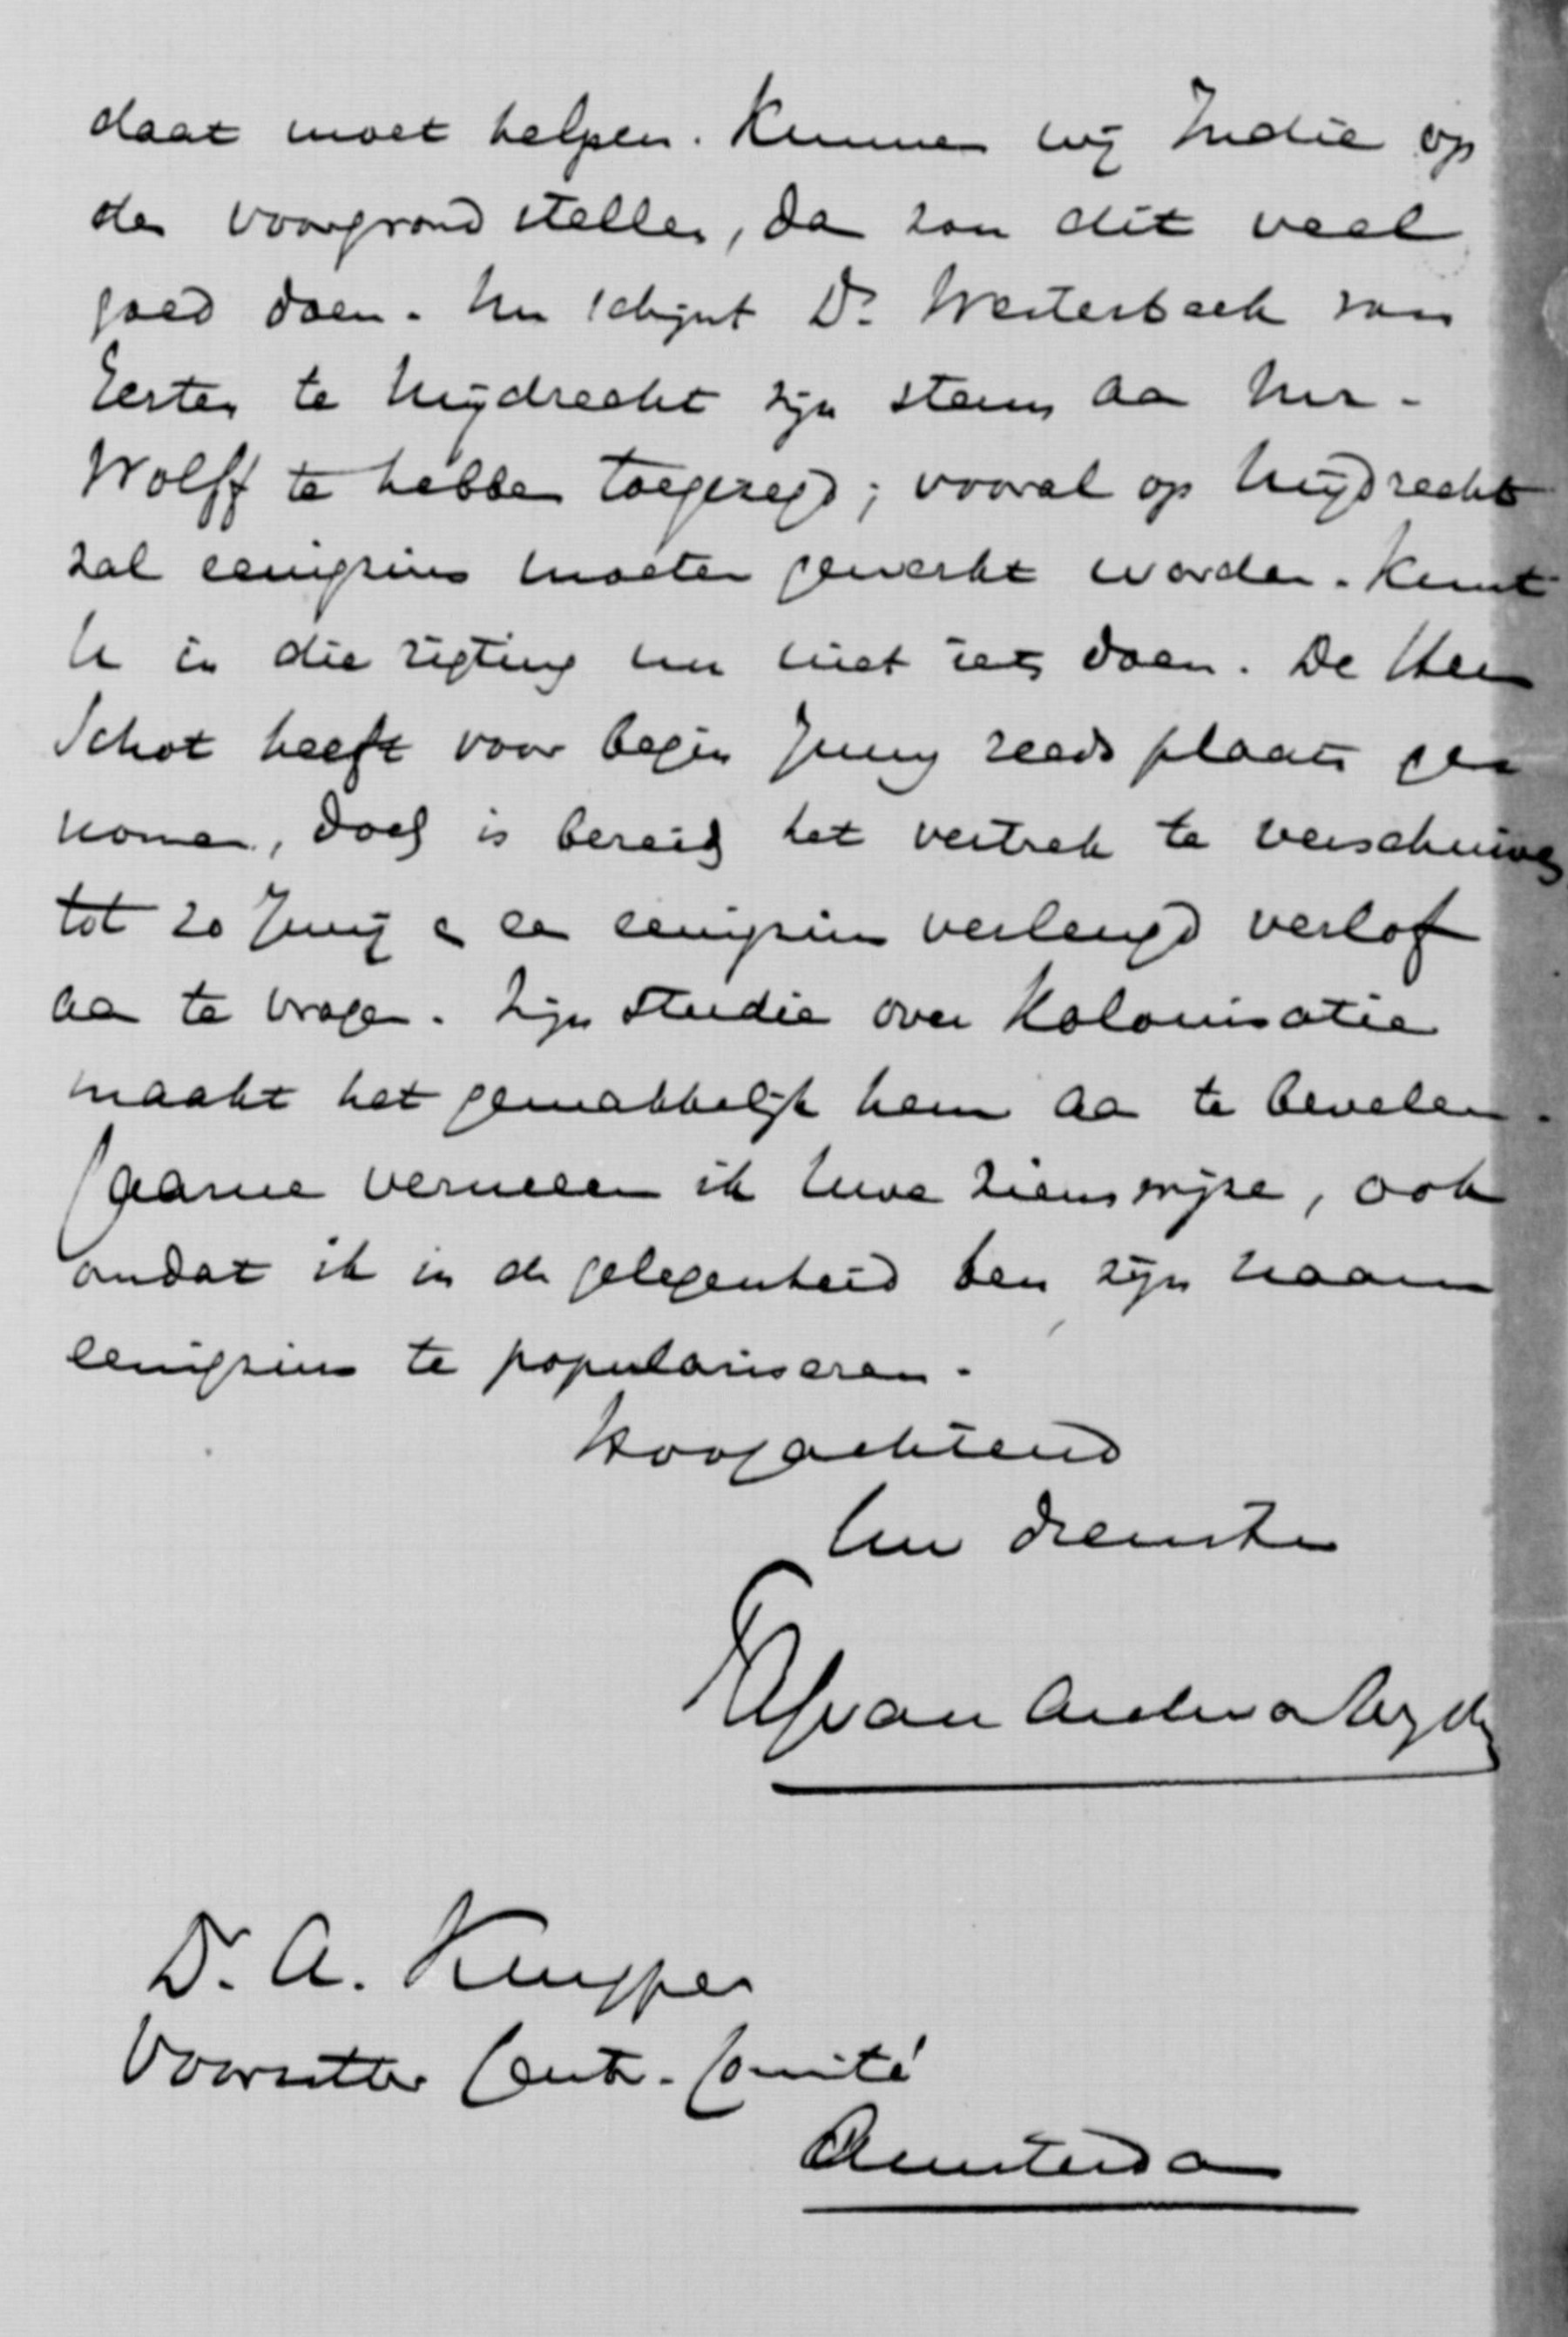 daat moet helpen. Kunnen wij Indie op
den voorgrond stellen, dan zou dit veel
goed doen. Nu schijnt Dr Westerbeek van
Eerten te Mijdrecht zijn stem aan Mr.
Wolff te hebben toegezegd; vooral op Mijdrecht
zal eenigzins moeten gewerkt worden. Kunt
U in die rigting nu niet iets doen. De Heer
Schot heeft voor begin Junij reeds plaats ge
nomen, doch is bereid het vertrek te verschuiven
tot 20 Junij & een eenigzins verlengd verlof
aan te vragen. Zijn studie over Kolonisatie
maakt het gemakkelijk hem aan te bevelen.
Gaarne verneem ik Uwe zienswijze, ook
omdat ik in de gelegenheid ben zijn naam
eenigzins te populariseren.
Hoogachtend
Uw dienstv
van
Dr. A. Kuyper
Voorzitter Centr. Comité
Amsterdam